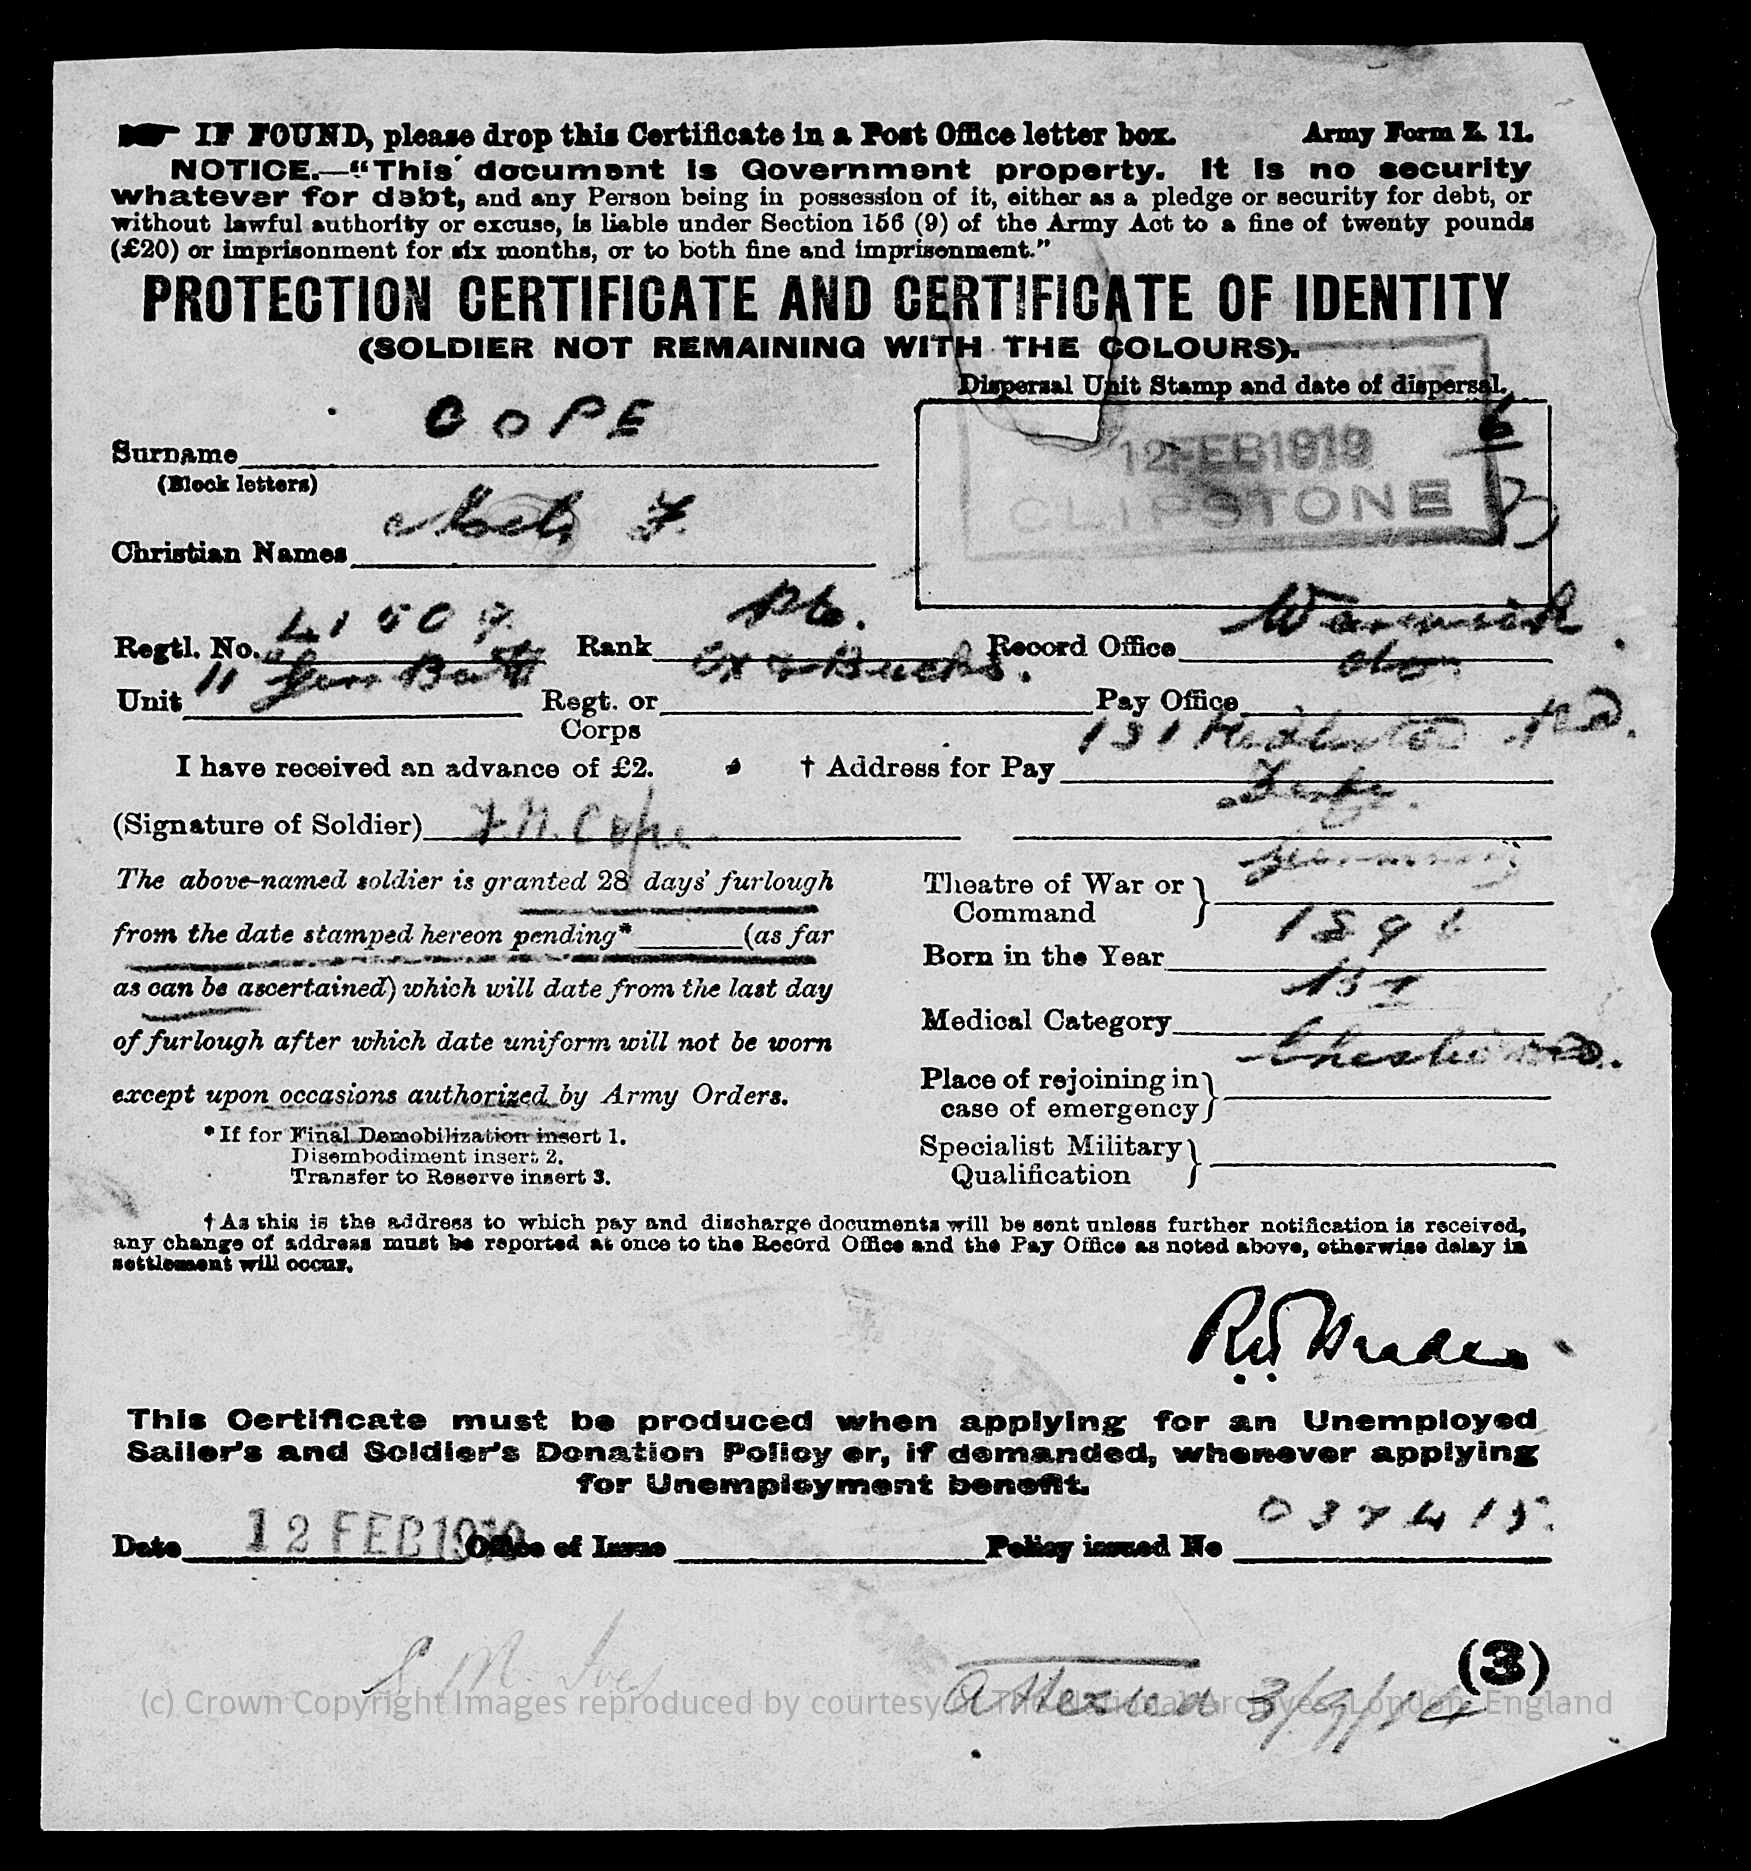 IF FOUND, please drop this Certificate in a Post Office letter box. Army Form Z. 11.
NOTICE.—"This document is Government property. It is no security
whatever for debt, and any Person being in possession of it, either as a pledge or security for debt, or
without lawful authority or excuse, is liable under Section 156 (9) of the Army Act to a fine of twenty pounds
(£20) or imprisonment for six months, or to both fine and imprisonment."
PROTECTION CERTIFICATE AND CERTIFICATE OF IDENTITY
(SOLDIER NOT REMAINING WITH THE COLOURS).
Dispersal Unit Stamp and date of dispersal.
12 FEB 1919
CLIPSTONE
Surname COPE
(Block letters)
Christian Names F.
Regtl. No. 41507 Rank Pte. Record Office Warwick
Unit 11 Batt Regt. or Ox & Bucks. Pay Office do.
Corps
I have received an advance of £2. † Address for Pay 131 Rd.
Derby.
(Signature of Soldier) F.N. Cope
The above-named soldier is granted 28 days' furlough
from the date stamped hereon pending* (as far
as can be ascertained) which will date from the last day
of furlough after which date uniform will not be worn
except upon occasions authorized by Army Orders.
*If for Final Demobilization insert 1.
Disembodiment insert 2.
Transfer to Reserve insert 3.
Theatre of War or } Germany
Command
Born in the Year 1896
Medical Category B1
Place of rejoining in }
case of emergency
Specialist Military }
Qualification
† As this is the address to which pay and discharge documents will be sent unless further notification is received,
any change of address must be reported at once to the Record Office and the Pay Office as noted above, otherwise delay in
settlement will occur.
This Certificate must be produced when applying for an Unemployed
Sailor's and Soldier's Donation Policy or, if demanded, whenever applying
for Unemployment benefit.
Date 12 FEB 1919 Office of Issue Policy issued No 037415.
(3)
Attested 3/9/14
(c) Crown Copyright Images reproduced by courtesy of The National Archives, London, England